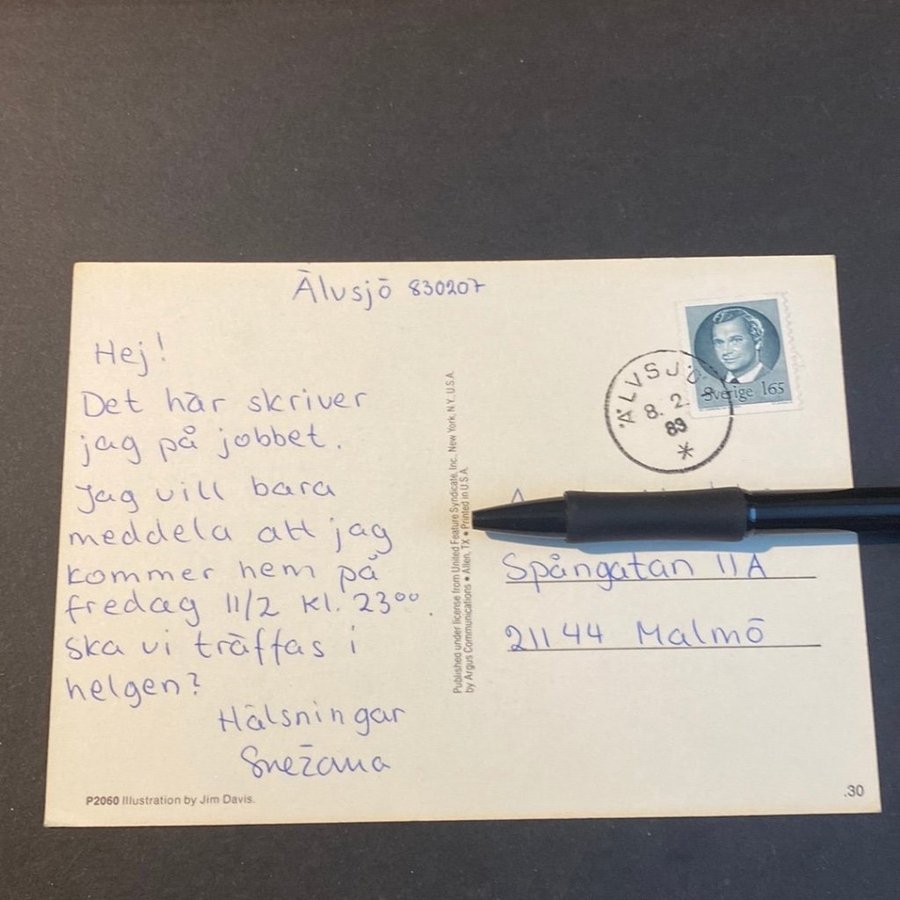 Älvsjö 830207
Hej!
Det här skriver
jag på jobbet.
Jag vill bara
meddela att jag
kommer hem på
fredag 11/2 kl. 23⁰⁰.
ska vi träffas i
helgen?
Hälsningar
Snežana
P2060 Illustration by Jim Davis.
Published under license from United Feature Syndicate, Inc., New York, N.Y. U.S.A.
by Argus Communications • Allen, TX • Printed in U.S.A.
Sverige 165
ÄLVSJÖ
8. 2.
83
*
Spångatan 11A
21144 Malmö
.30